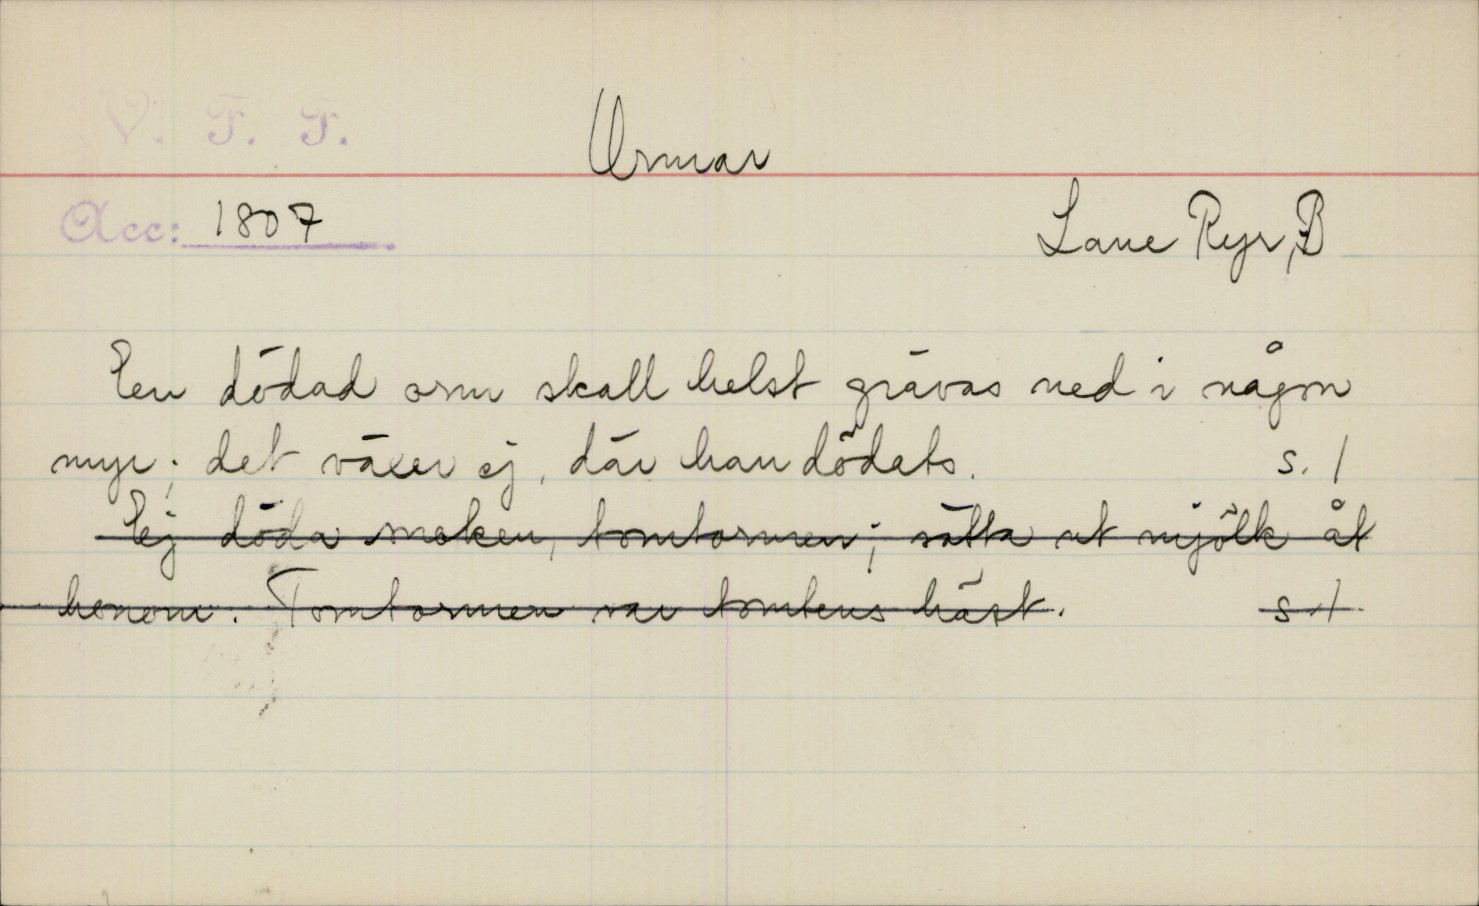 V. F. F.
Ormar
Acc: 1807
Lane Ryr, B
En dödad orm skall helst grävas ned i någon
myr; det växer ej, där han dödats. s. 1
Ej döda snoken, tomtormen; sätta ut mjölk åt
honom. Tomtormen var tomtens häst. s 1